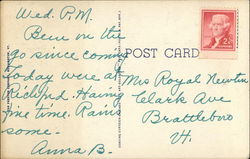 Wed. P.M.
Been on the
go since coming
POST CARD
today were at
Richford. Having
fine time. Rain
some.-
Anna B-
Mrs Royal Newton
Clark Ave
Brattleboro
Vt.